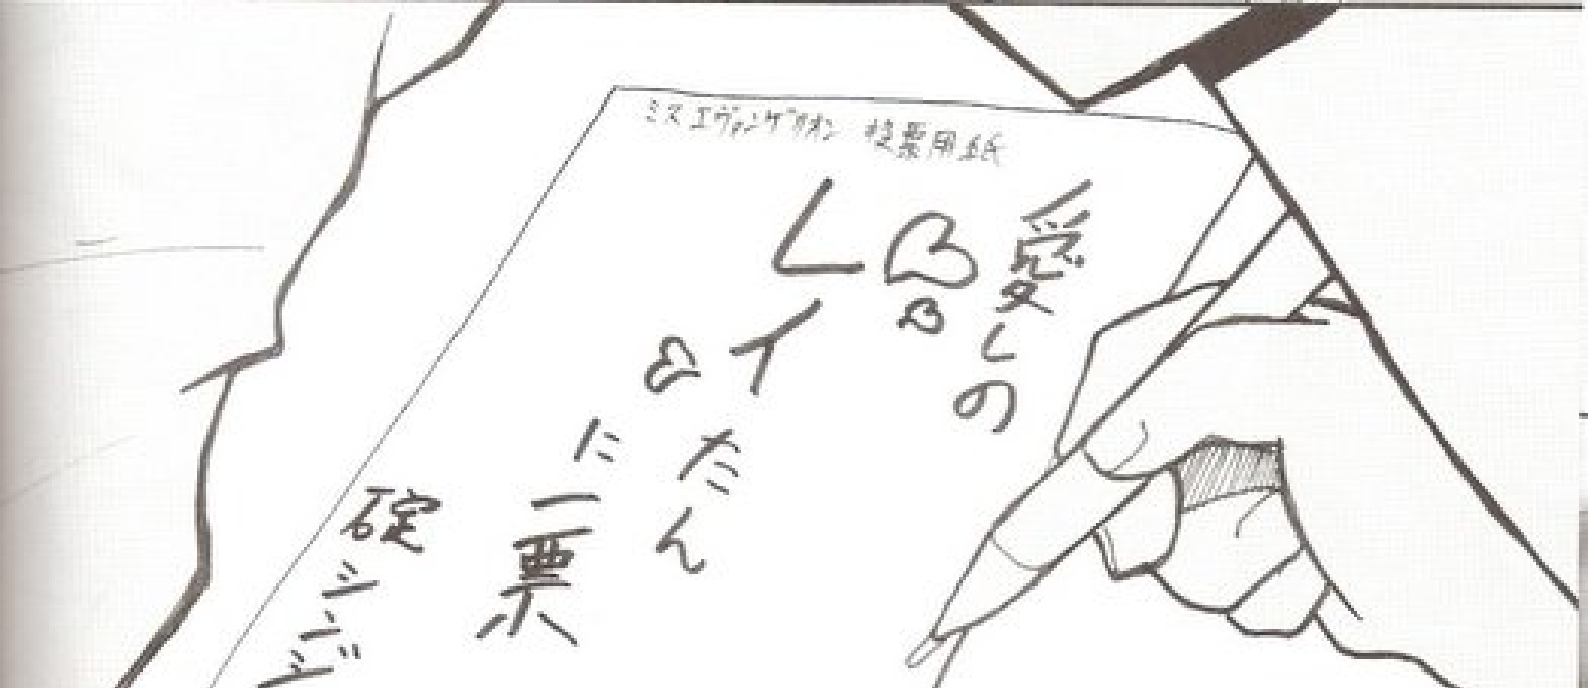 ミス エヴァンゲリオン 投票用紙
愛しの
レイたん
に一票
碇シンジ